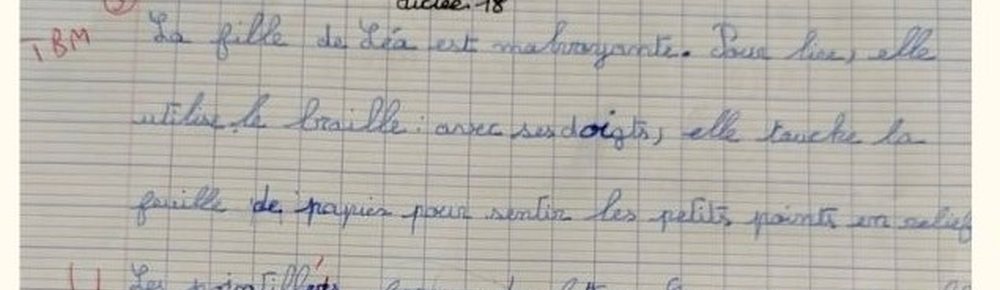 dictée 18
TBM La fille de Léa est malvoyante. Pour lire, elle
utilise le braille : avec ses doigts, elle touche la
feuille de papier pour sentir les petits points en relief
Les